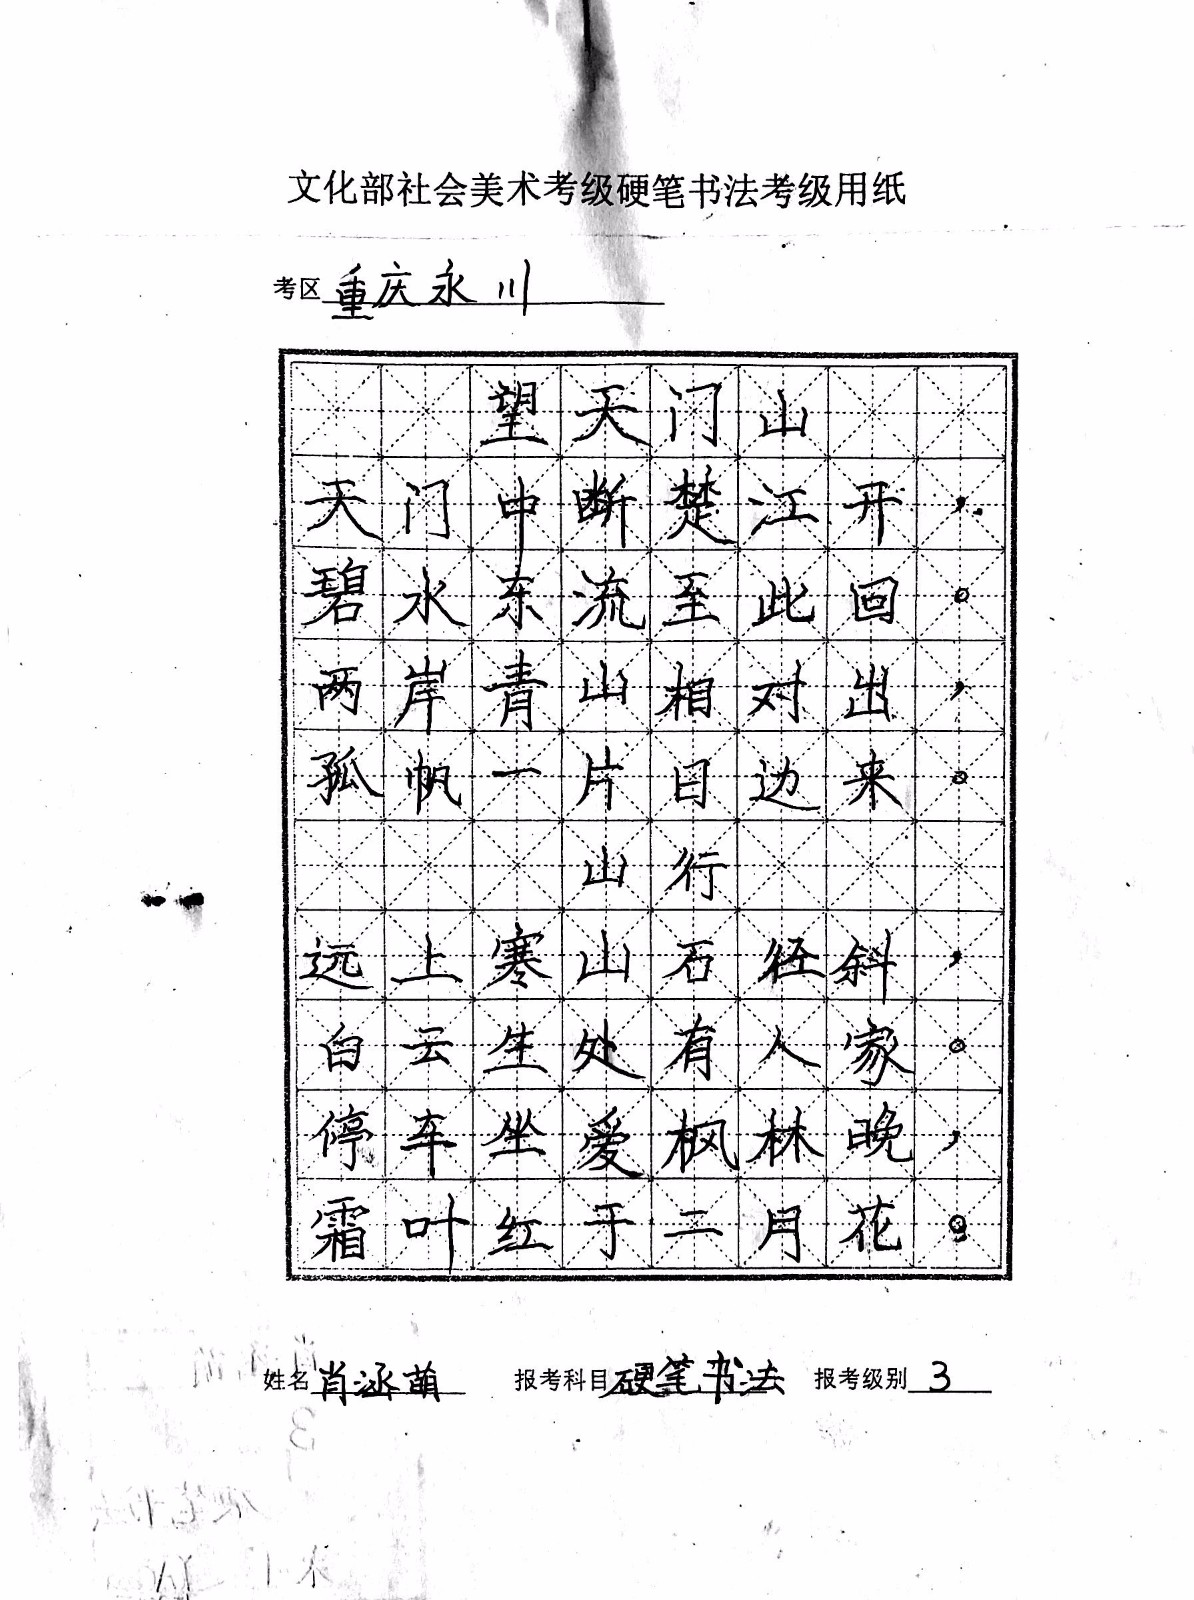 文化部社会美术考级硬笔书法考级用纸
考区 重庆永川
望天门山
天门中断楚江开，
碧水东流至此回。
两岸青山相对出，
孤帆一片日边来。
山行
远上寒山石径斜，
白云生处有人家。
停车坐爱枫林晚，
霜叶红于二月花。
姓名 肖涵萌 报考科目 硬笔书法 报考级别 3